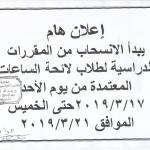 إعلان هام
يبدأ الانسحاب من المقررات
الدراسية لطلاب لائحة الساعات
المعتمدة من يوم الأحد
٢٠١٩/٣/١٧ حتى الخميس
الموافق ٢٠١٩/٣/٢١